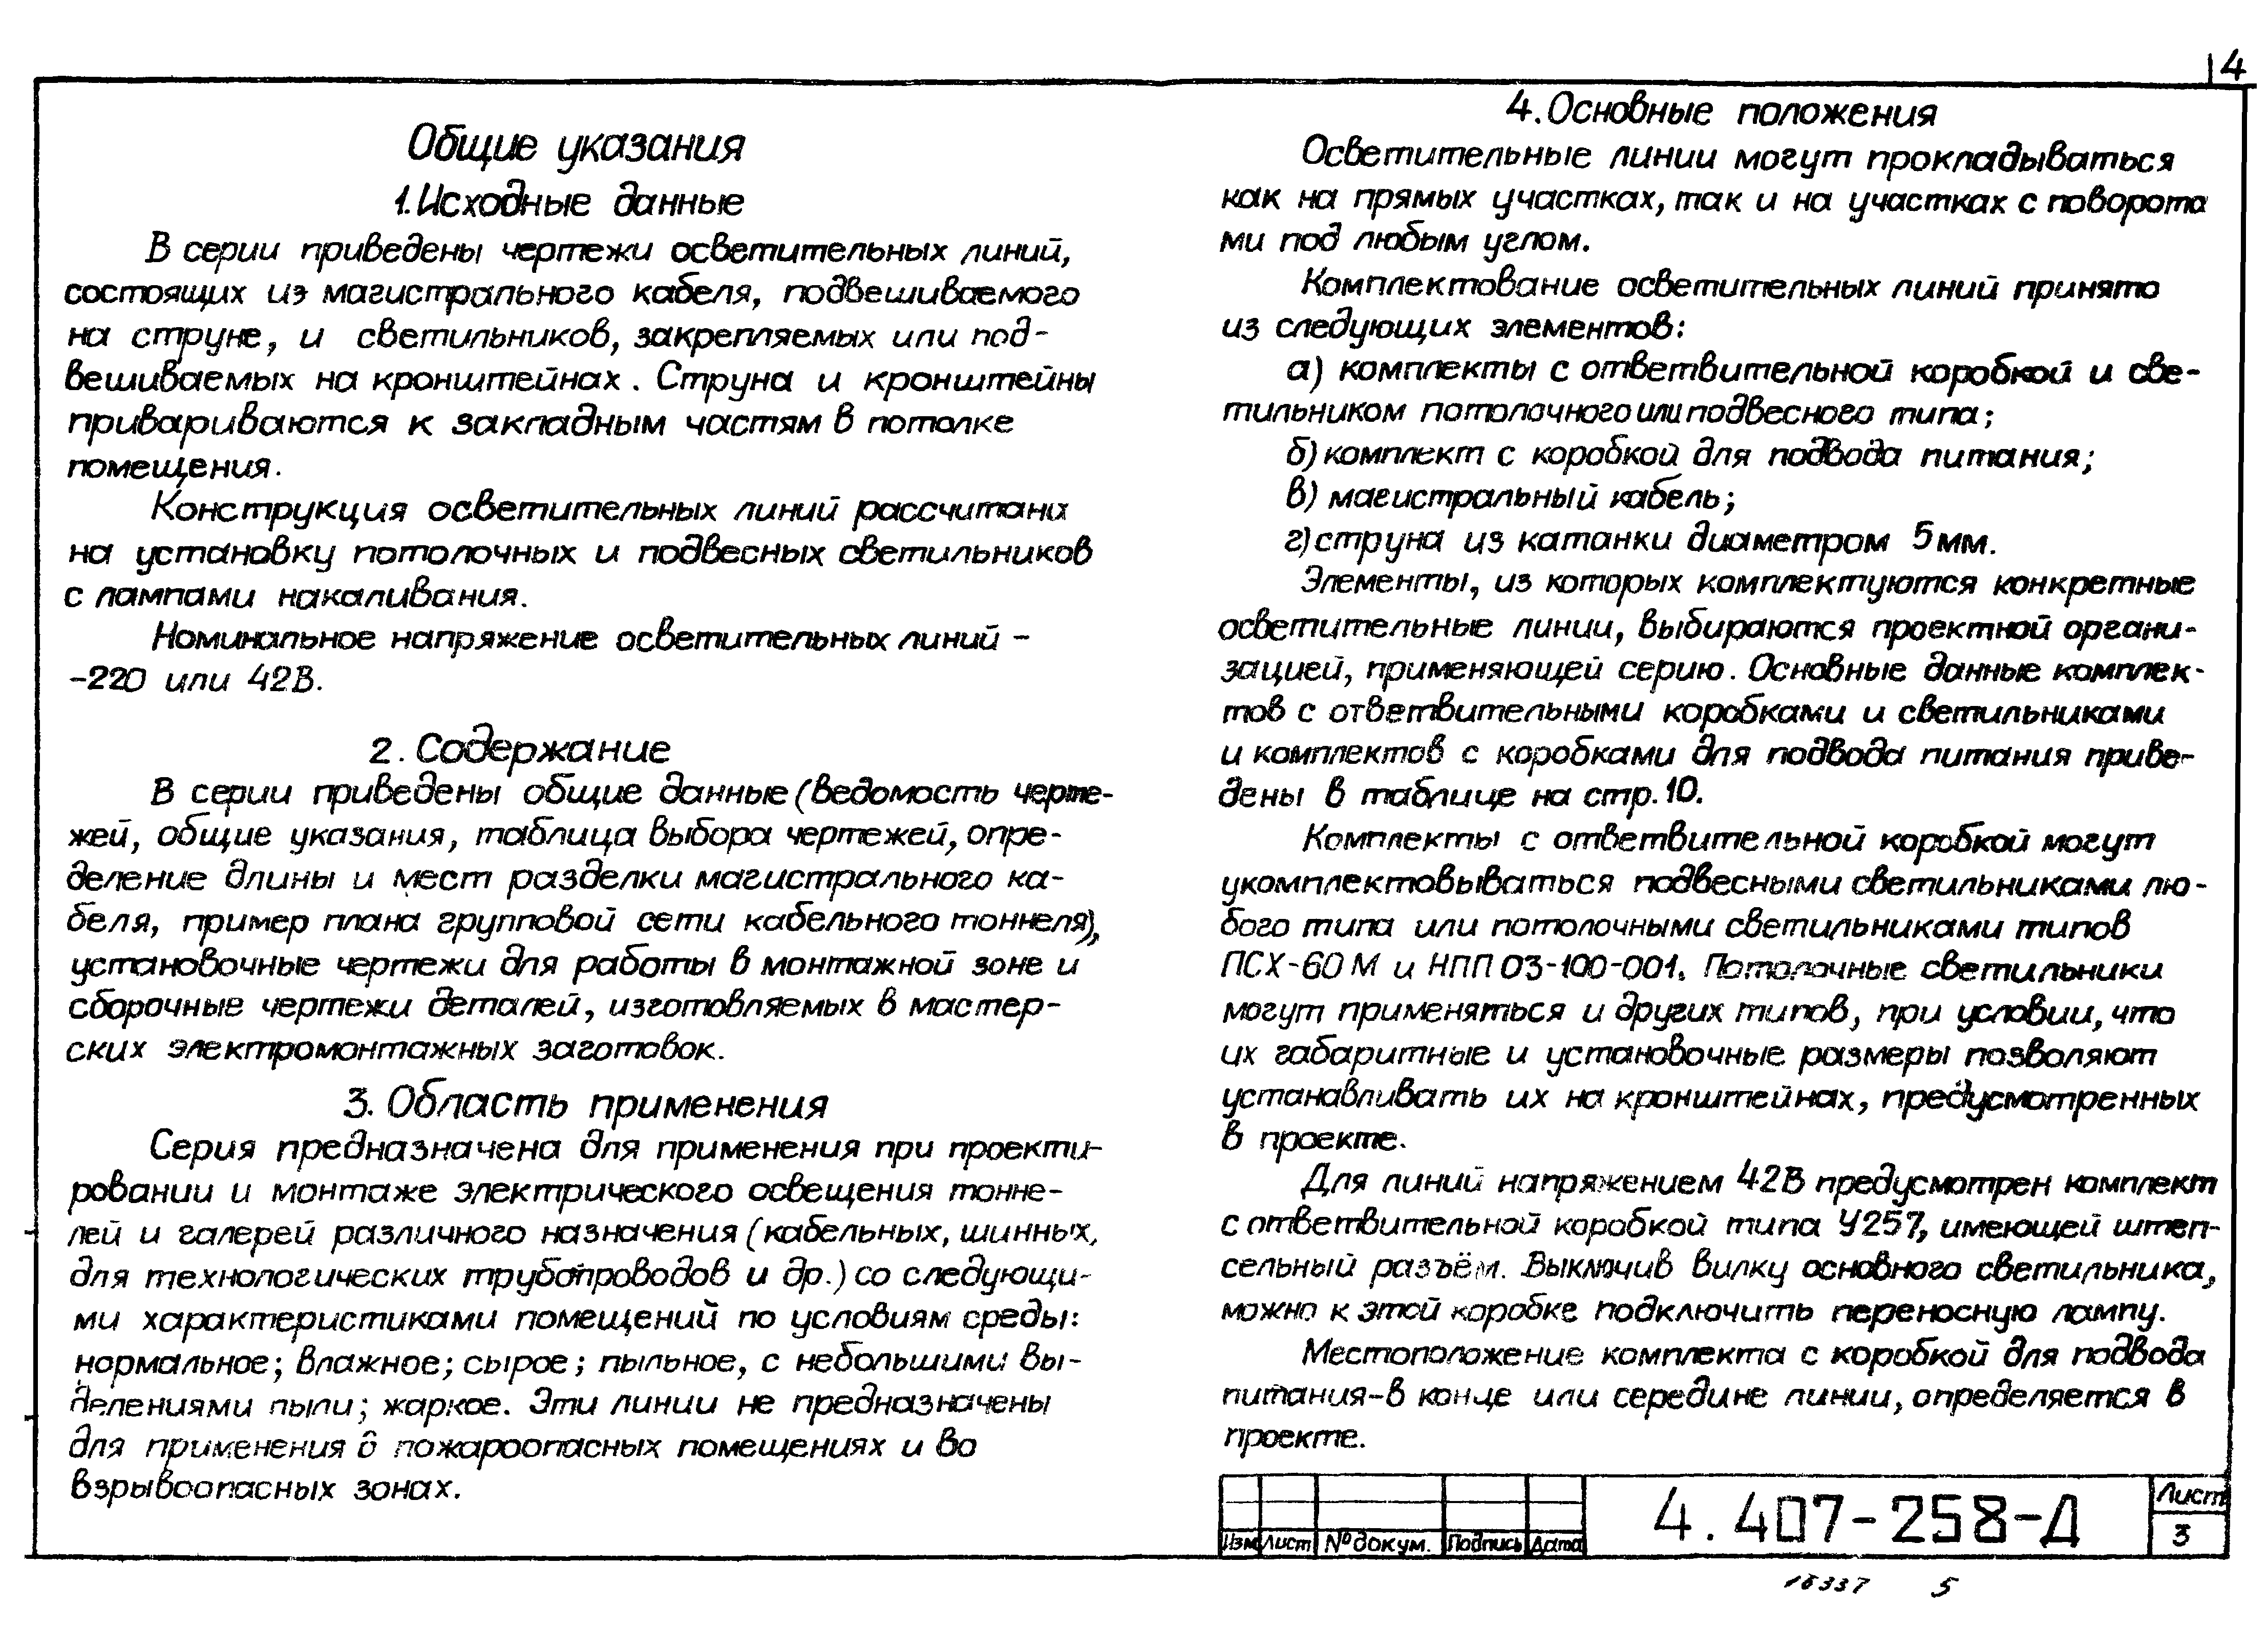 4
Общие указания
1. Исходные данные
В серии приведены чертежи осветительных линий,
состоящих из магистрального кабеля, подвешиваемого
на струне, и светильников, закрепляемых или под-
вешиваемых на кронштейнах. Струна и кронштейны
привариваются к закладным частям в потолке
помещения.
Конструкция осветительных линий рассчитана
на установку потолочных и подвесных светильников
с лампами накаливания.
Номинальное напряжение осветительных линий -
-220 или 42В.
2. Содержание
В серии приведены общие данные (ведомость черте-
жей, общие указания, таблица выбора чертежей, опре-
деление длины и мест разделки магистрального ка-
беля, пример плана групповой сети кабельного тоннеля),
установочные чертежи для работы в монтажной зоне и
сборочные чертежи деталей, изготовляемых в мастер-
ских электромонтажных заготовок.
3. Область применения
Серия предназначена для применения при проекти-
ровании и монтаже электрического освещения тонне-
лей и галерей различного назначения (кабельных, шинных,
для технологических трубопроводов и др.) со следующи-
ми характеристиками помещений по условиям среды:
нормальное; влажное; сырое; пыльное, с небольшими вы-
делениями пыли; жаркое. Эти линии не предназначены
для применения в пожароопасных помещениях и во
взрывоопасных зонах.
4. Основные положения
Осветительные линии могут прокладываться
как на прямых участках, так и на участках с поворота
ми под любым углом.
Комплектование осветительных линий принято
из следующих элементов:
а) комплекты с ответвительной коробкой и све-
тильником потолочного или подвесного типа;
б) комплект с коробкой для подвода питания;
в) магистральный кабель;
г) струна из катанки диаметром 5 мм.
Элементы, из которых комплектуются конкретные
осветительные линии, выбираются проектной органи-
зацией, применяющей серию. Основные данные комплек-
тов с ответвительными коробками и светильниками
и комплектов с коробками для подвода питания приве-
дены в таблице на стр. 10.
Комплекты с ответвительной коробкой могут
укомплектовываться подвесными светильниками лю-
бого типа или потолочными светильниками типов
ПСХ-60М и НПП 03-100-001. Потолочные светильники
могут применяться и других типов, при условии, что
их габаритные и установочные размеры позволяют
устанавливать их на кронштейнах, предусмотренных
в проекте.
Для линий напряжением 42В предусмотрен комплект
с ответвительной коробкой типа У257, имеющей штеп-
сельный разъём. Выключив вилку основного светильника,
можно к этой коробке подключить переносную лампу.
Местоположение комплекта с коробкой для подвода
питания-в конце или середине линии, определяется в
проекте.
Изм Лист № докум. Подпись Дата
4.407-258-Д
Лист
3
16337 5